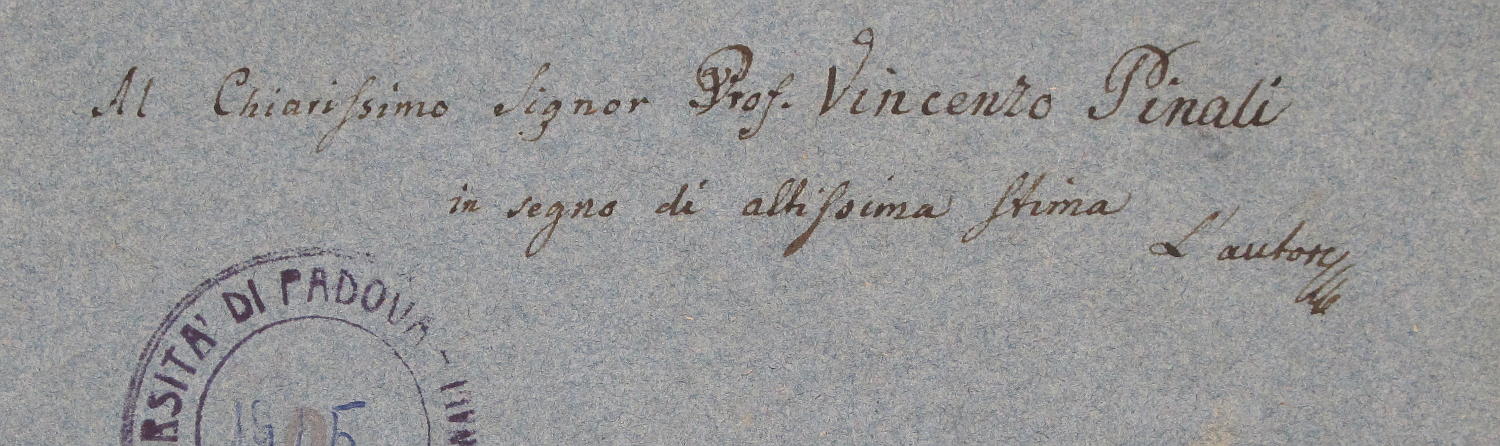 Al Chiarissimo Signor Prof. Vincenzo Pinali
in segno di altissima stima
L'autore
RSITA' DI PADOVA -